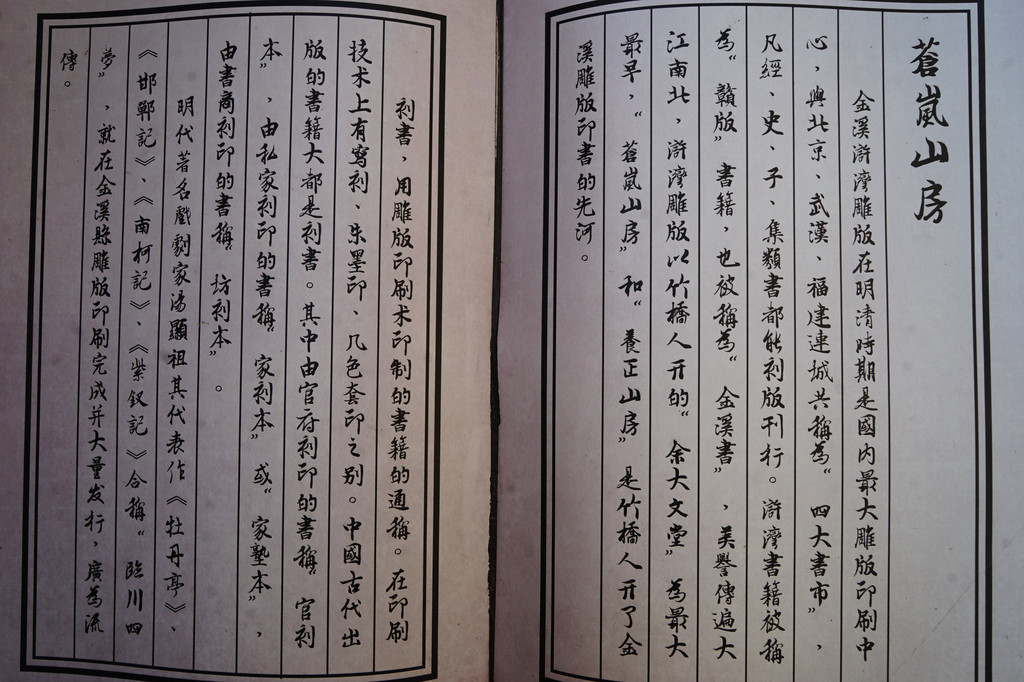 蒼嵐山房
金溪滸灣雕版在明清時期是國内最大雕版印刷中
心，與北京、武漢、福建連城共稱為“四大書市”，
凡經、史、子、集類書都能刻版刊行。滸灣書籍被稱
為“贛版”書籍，也被稱為“金溪書”，美譽傳遍大
江南北，滸灣雕版以竹橋人开的“余大文堂”為最大
最早，“蒼嵐山房”和“養正山房”是竹橋人开了金
溪雕版印書的先河。
刻書，用雕版印刷术印制的書籍的通稱。在印刷
技术上有寫刻、朱墨印、几色套印之别。中國古代出
版的書籍大都是刻書。其中由官府刻印的書稱“官刻
本”，由私家刻印的書稱“家刻本”或“家塾本”，
由書商刻印的書稱“坊刻本”。
明代著名戲劇家湯顯祖其代表作《牡丹亭》、
《邯鄲記》、《南柯記》、《紫釵記》合稱“臨川四
夢”，就在金溪縣雕版印刷完成并大量发行，廣為流
傳。